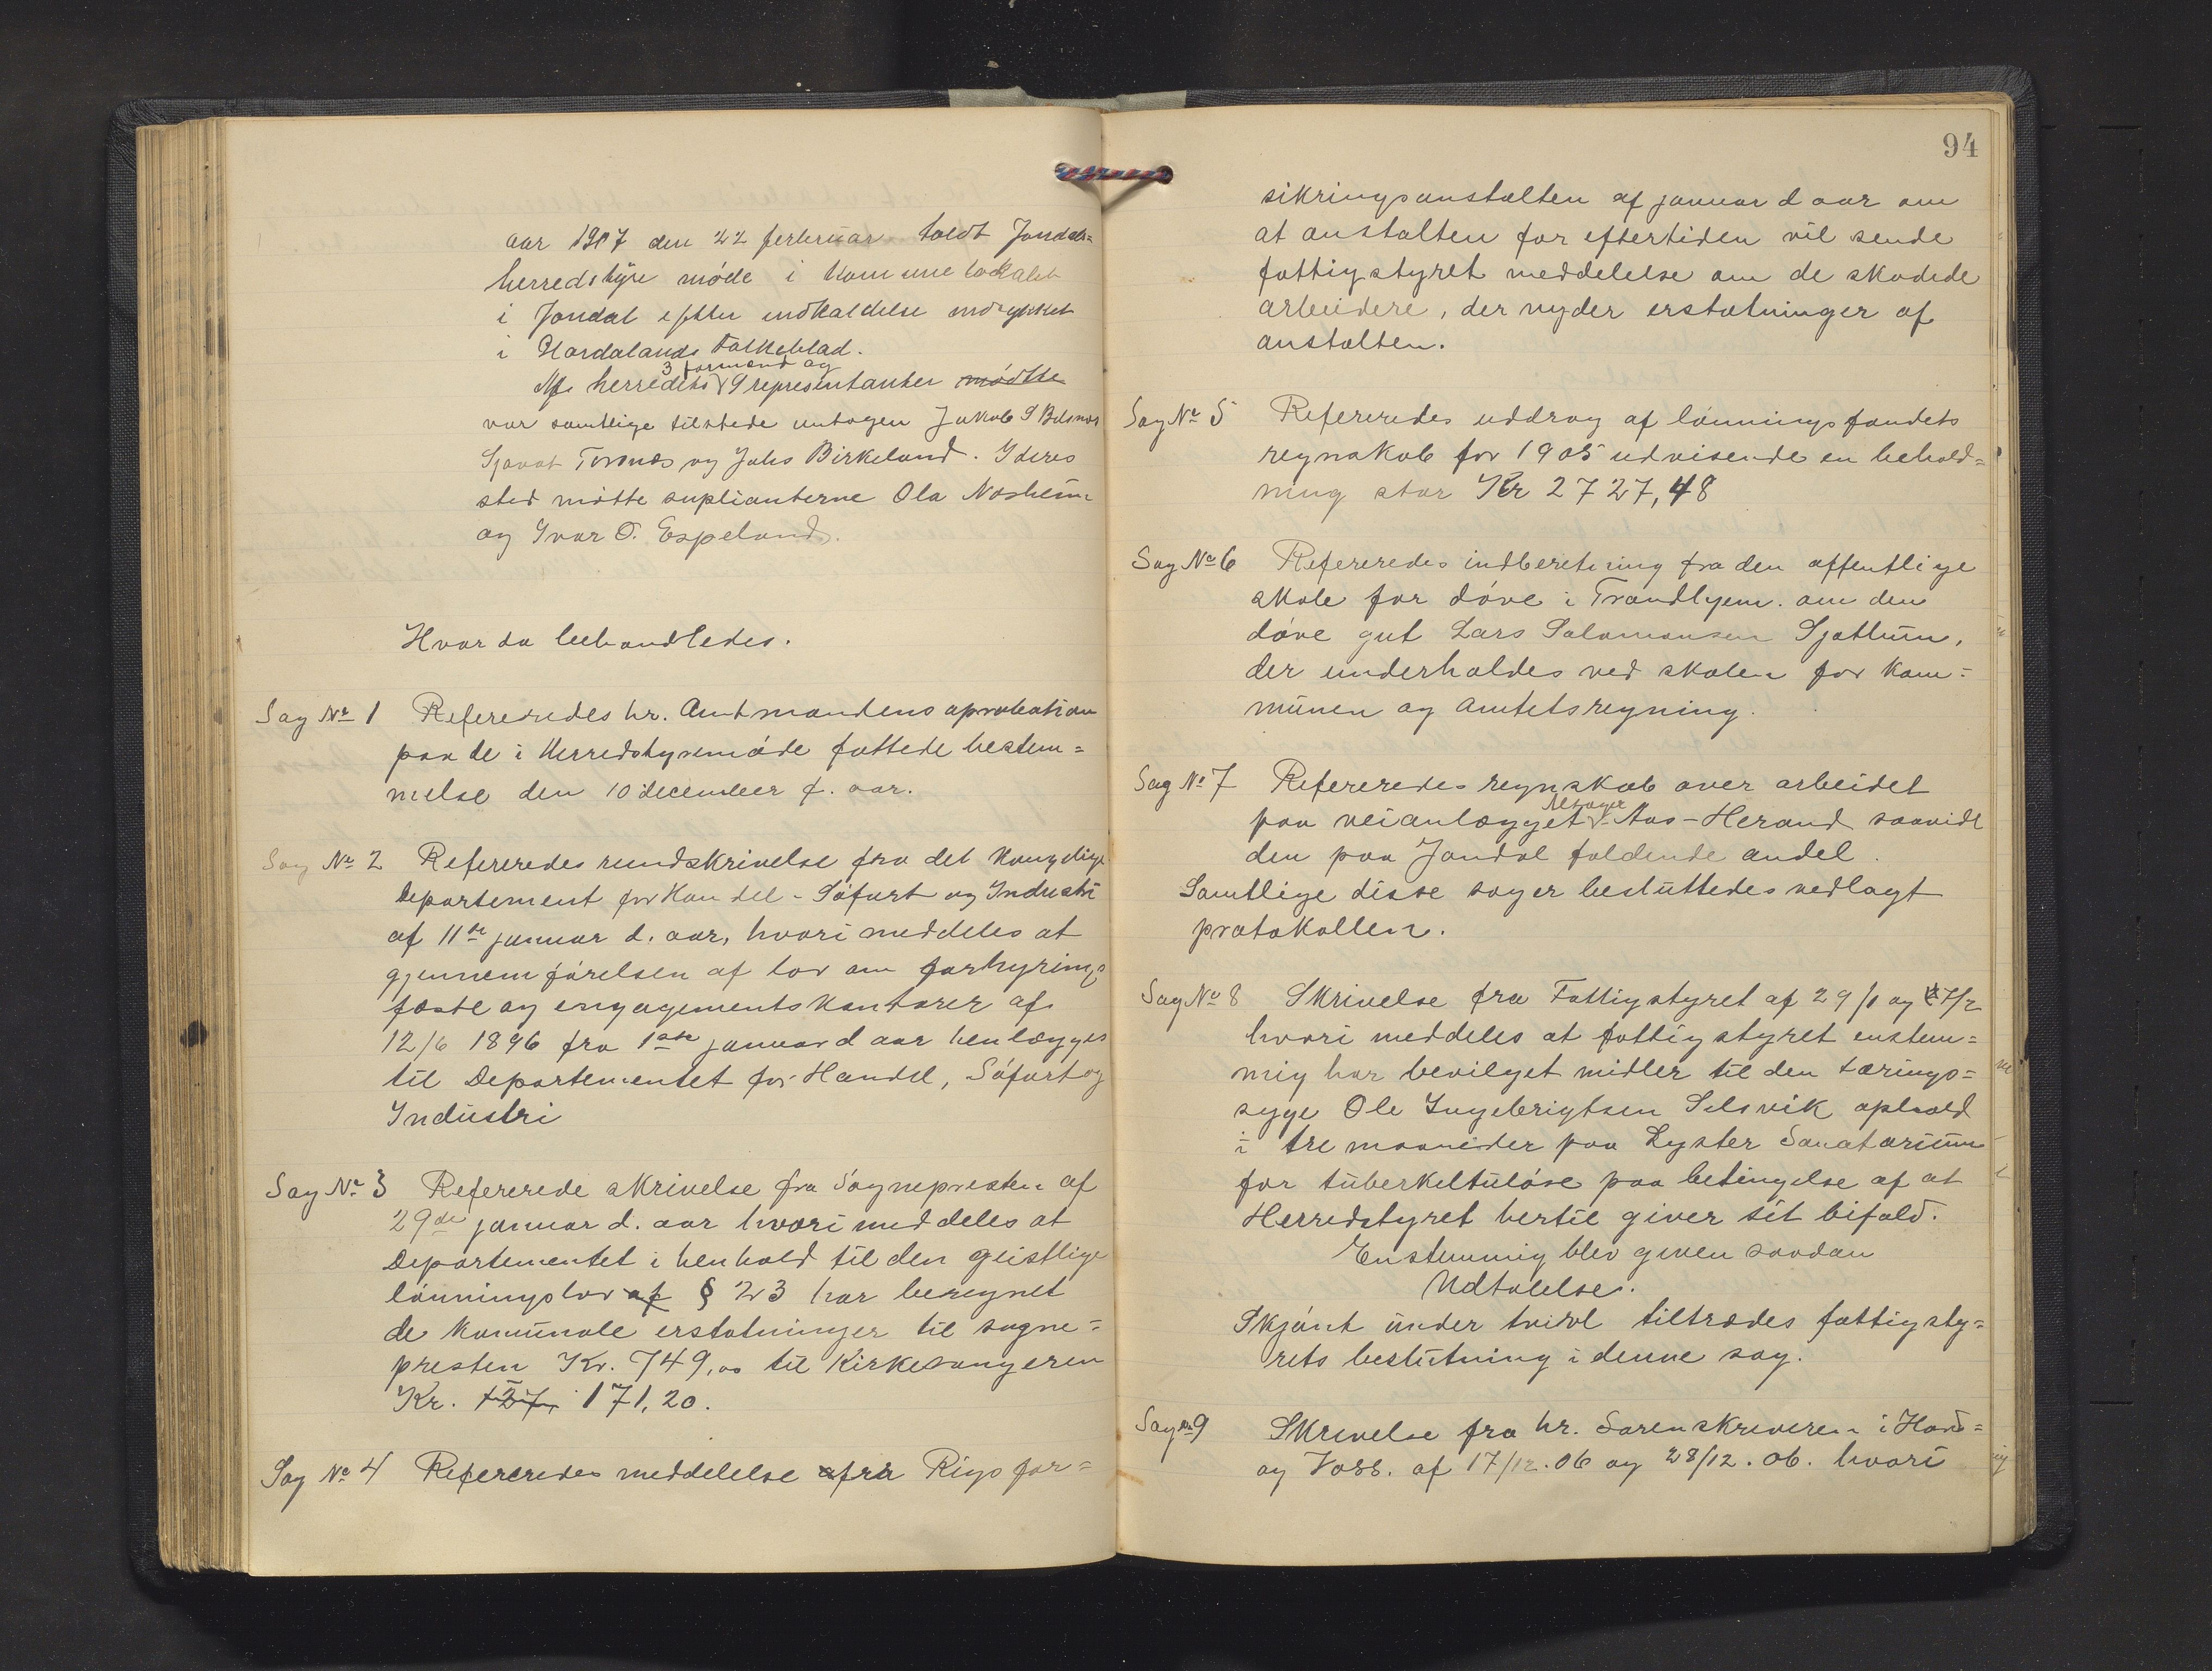 aar 1907 den 22 ferbruar holdt Jondals=
herredstyre møde i Kommunelokalet
i Jondal efter indkaldelse indrykket
i Hardalands Folkeblad.
3 formænd og
Af herredets 9 representanter mødte
var samtlige tilstede untagen Jakob S
Sjovat Tornæs og Johs Birkeland. I deres
sted møtte suplianterne Ola Næsheim
og Ivar O. Espeland.
Hvor da behandledes.
Sag No 1 Refereredes hr. Amtmandens aprobation
paa de i Herredstyremøde fattede bestem=
melse den 10 december f. aar.
Sag No 2 Refereredes rundskrivelse fra det Kongelige
Departement for Handel - Søfart og Industri
af 11te januar d. aar, hvori meddeles at
gjennemførelsen af lov om forhyrings
fæste og engagementskontorer af
12/6 1896 fra 1ste januar d aar henlægges
til Departementet for Handel, Søfart og
Industri
Sag No 3 Refererede skrivelse fra Sognepresten af
29de januar d. aar hvori meddeles at
Departementet i henhold til den geistlige
lønningslov af § 23 har beregnet
de komunale erstatninger til sogne=
presten Kr. 749,00 til Kirkesangeren
Kr. 127, 171,20.
Sag No 4 Refereredes meddelelse afra Rigsfor=
94
sikringsanstalten af januar d aar om
at anstalten for eftertiden vil sende
fattigstyret meddelelse om de skadede
arbeidere, der nyder erstatninger af
anstalten.
Sag No 5 Refereredes uddrag af lønningsfondets
regnskab for 1905 udvisende en behold=
ning stor Kr 2727,48
Sag No 6 Refereredes indberetning fra den offentlige
skole for døve i Trondhjem. om den
døve gut Lars Salamonsen Sjøthun,
der underholdes ved skolen for kom=
munen og Amtetsregning.
Sag No 7 Refereredes regnskab over arbeidet
paa veianlægget Aas-Herand saavidt
den paa Jondal faldende andel.
Samtlige disse sager besluttedes vedlagt
protokollen.
Sag No 8 Skrivelse fra Fattigstyret af 29/1 og 7/2
hvori meddeles at fattigstyret enstem=
mig har bevilget midler til den tærings=
syge Ole Ingebrigtsen Selsvik ophold
i tre maaneder paa Lyster Sanatorium
for tuberkeltuløse paa betingelse af at
Herredstyret hertil giver sit bifald.
Enstemmig blev given saadan
Udtalelse.
Skjønt under tvivl tiltrædes fattigsty=
rets beslutning i denne sag.
Sag No 9 Skrivelse fra hr. Sorenskriveren i Hard=
og Voss. af 17/12.06 og 28/12.06. hvori